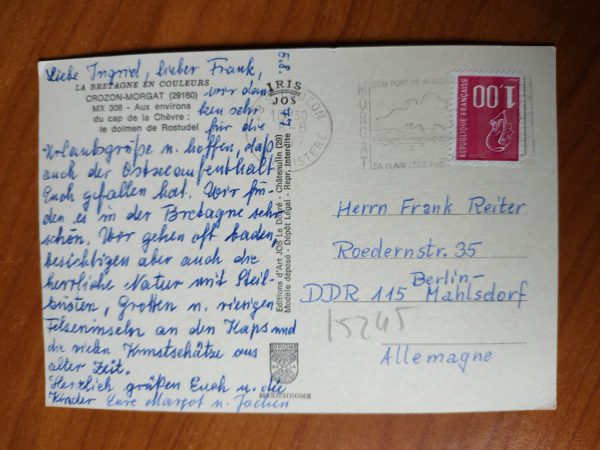 Liebe Ingrid, lieber Frank,
LA BRETAGNE EN COULEURS
CROZON-MORGAT (29160)
MX 308 - Aux environs
du cap de la Chèvre :
le dolmen de Rostudel
wir dan
ken sehr
für die
Urlaubsgrüße u. hoffen, daß
auch der Ostseeaufenthalt
Euch gefallen hat. Wir fin-
den es in der Bretagne sehr
schön. Wir gehen oft baden,
besichtigen aber auch die
herrliche Natur mit Steil-
küsten, Grotten u. riesigen
Felseninseln an den Kaps und
die vielen Kunstschätze aus
alter Zeit.
Herzlich grüßen Euch u. die
Kinder Eure Margot u. Jochen
5.8.
77
IRIS
JOS
Editions d'Art JOS Le Doaré - Châteaulin (29)
Modèle déposé - Dépôt Légal - Repr. Interdite
MEXICHROME
SON PORT DE PLAISANCE
MORGAT
SA PLAGE, SES
FINISTERE
1,00
REPUBLIQUE FRANÇAISE
Herrn Frank Reiter
Roedernstr. 35
Berlin-
DDR 115 Mahlsdorf
15245
Allemagne